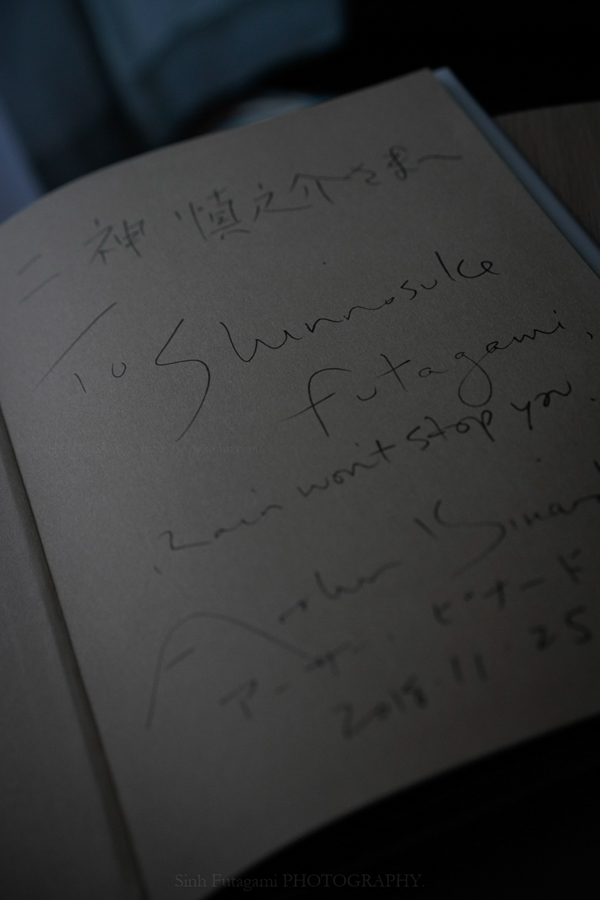 二神 慎之介さまへ
To Shinnosuke
Futagami,
Rain won't stop you.
Arthur Binard
アーサー・ビナード
2018.11.25
Sinh Futagami PHOTOGRAPHY.